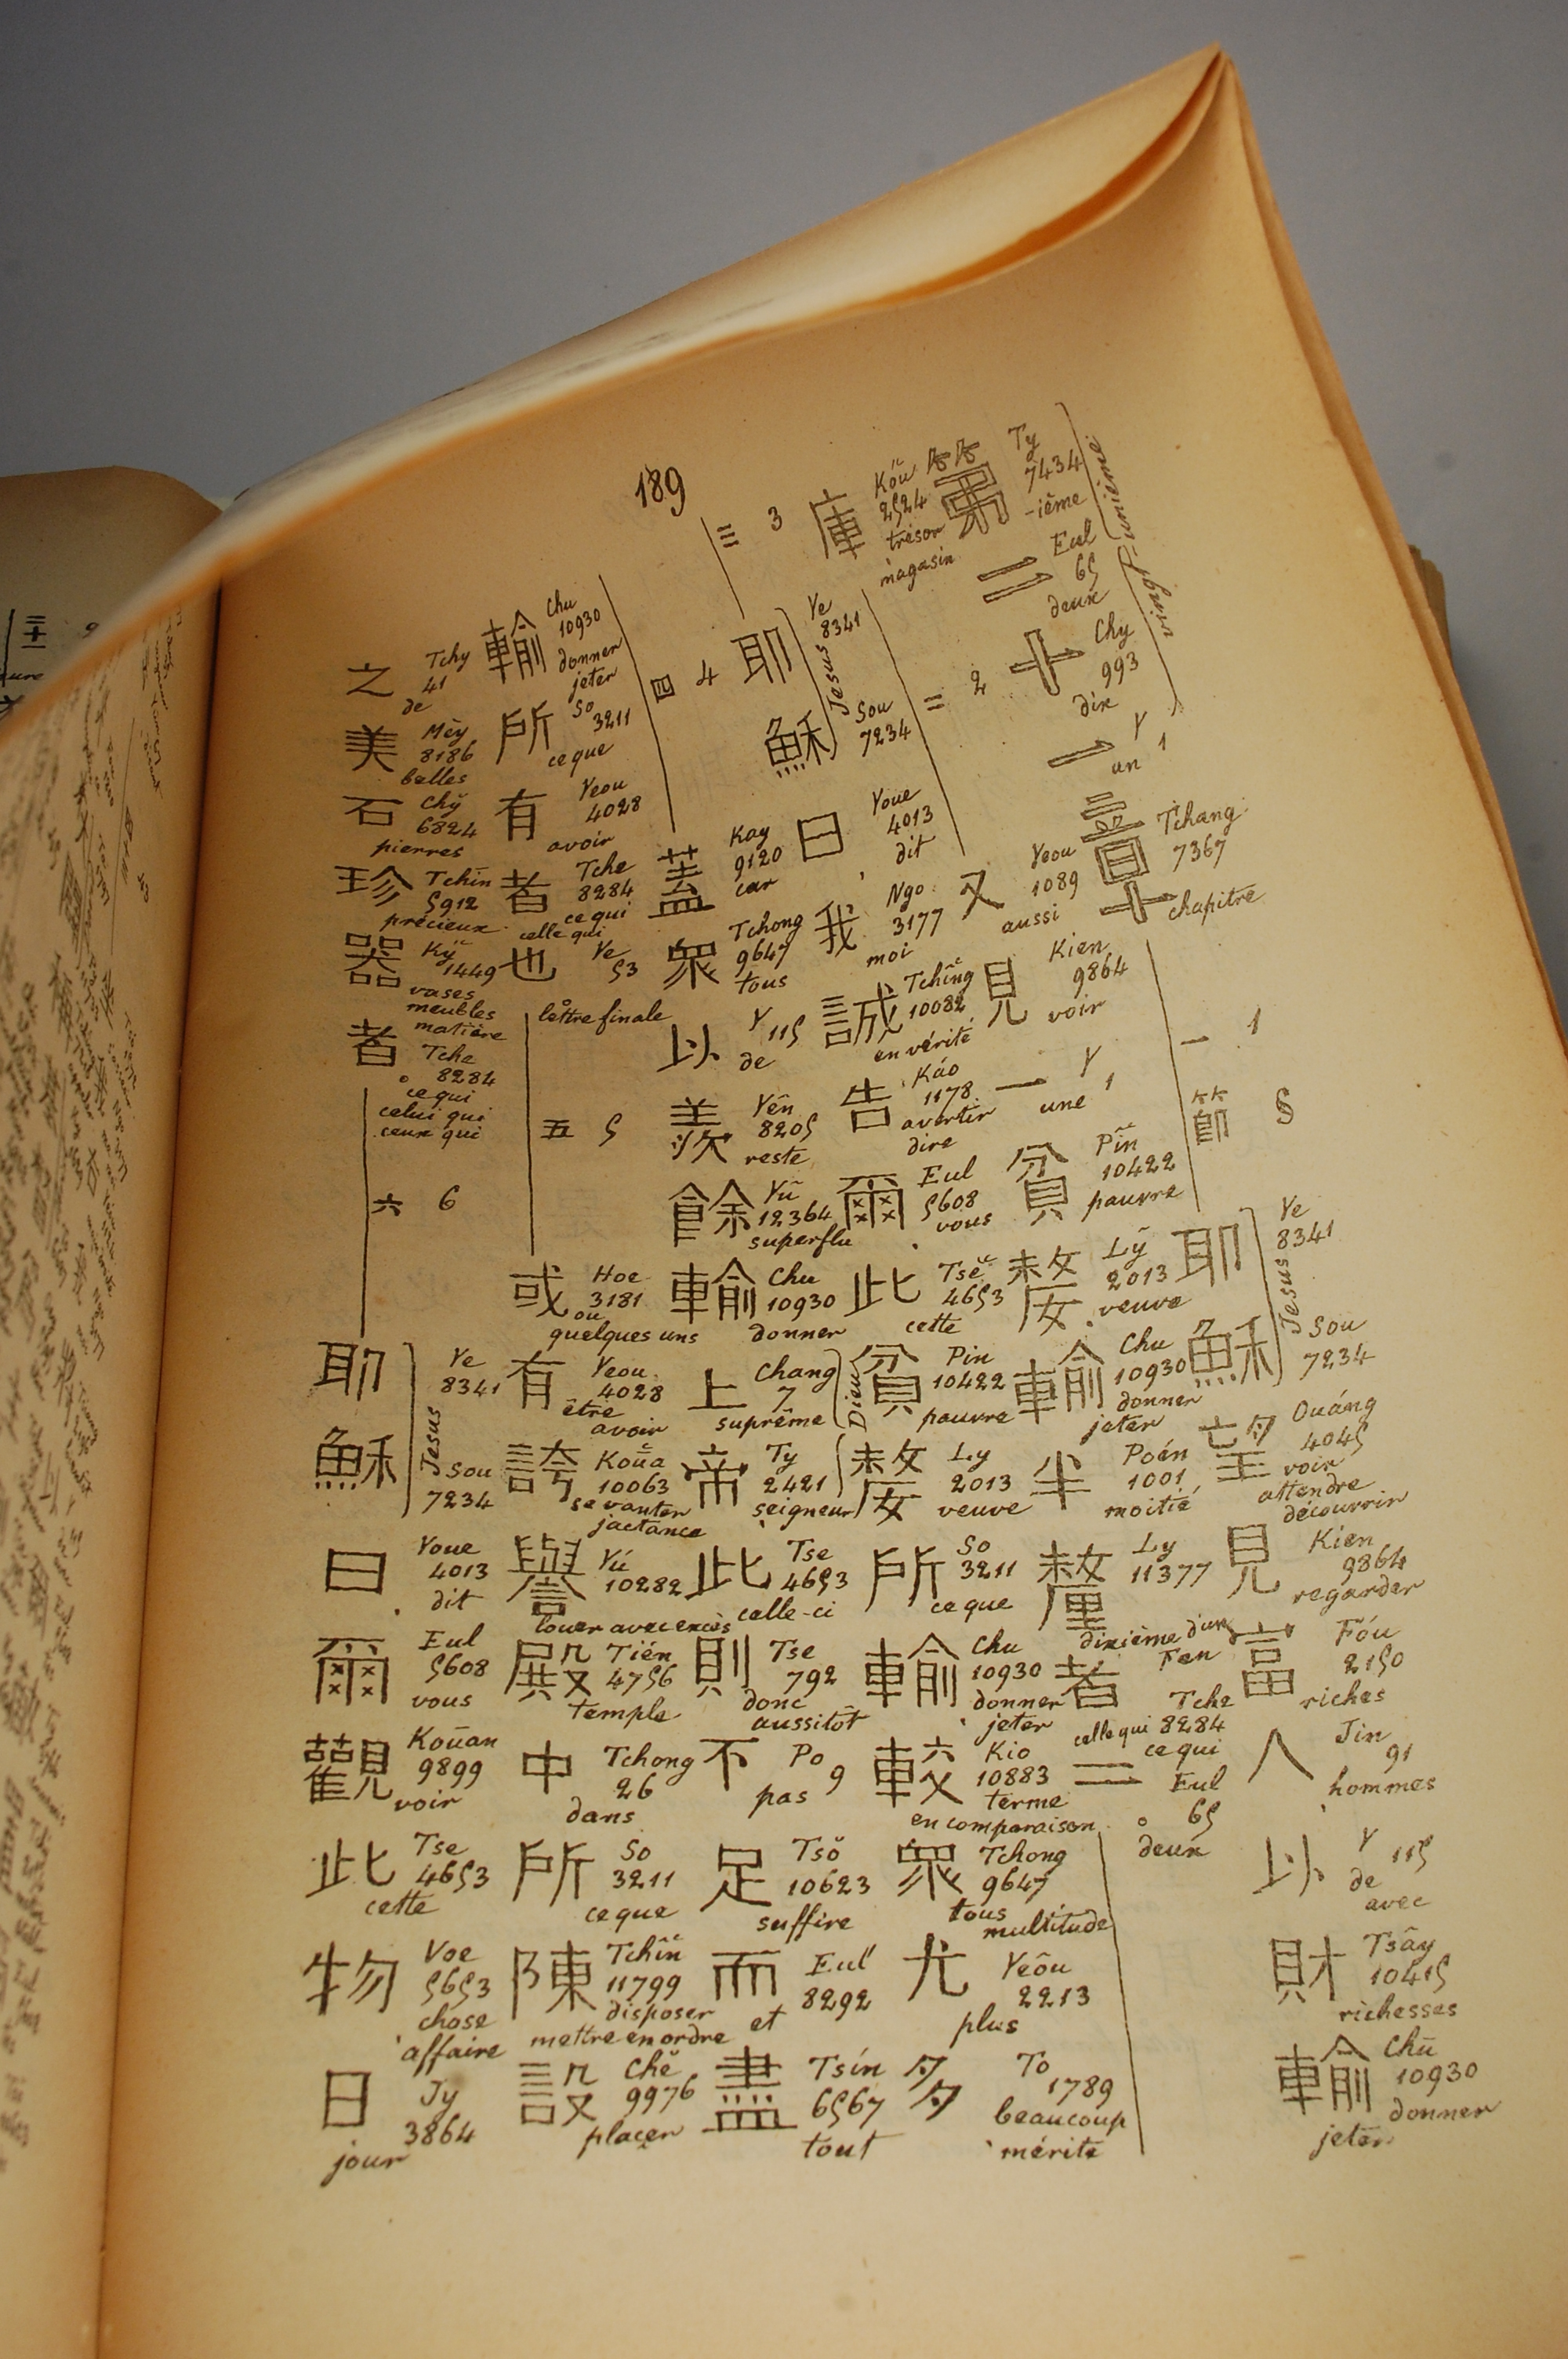 189
第 Ty 7434 -ième
二 Eul 65 deux
十 Chy 993 dix
一 Y 1 un
vingt-unième
章 Tchang 7367 chapitre
一 1
節 §
耶 Ye 8341
穌 Sou 7234
Jesus
望 Ouáng 4045 voir attendre découvrir
見 Kien 9864 regarder
富 Fóu 2150 riches
人 Jin 91 hommes
以 Y 115 de avec
財 Tsây 10415 richesses
輸 Chū 10930 donner jeter
庫 Koú 2524 trésor magasin
二 2
又 Yeou 1089 aussi
見 Kien 9864 voir
一 Y 1 une
貧 Pîn 10422 pauvre
嫠 Lŷ 2013 veuve
輸 Chu 10930 donner jeter
半 Poén 1001 moitié
釐 Ly 11377 dixième d'un Fen
者 Tche 8284 celle qui ce qui
二 Eul 65 deux
三 3
耶 Ye 8341
穌 Sou 7234
Jesus
曰 Youe 4013 dit
我 Ngo 3177 moi
誠 Tchîng 10082 en vérité
告 Káo 1178 avertir dire
爾 Eul 5608 vous
此 Tse 4653 cette
貧 Pin 10422 pauvre
嫠 Ly 2013 veuve
所 So 3211 ce que
輸 Chu 10930 donner jeter
較 Kio 10883 terme en comparaison
衆 Tchong 9647 tous multitude
尤 Yeôu 2213 plus
多 To 1789 beaucoup mérite
四 4
蓋 Kay 9120 car
衆 Tchong 9647 tous
以 Y 115 de
羨 Yên 8205 reste
餘 Yû 12364 superflu
輸 Chu 10930 donner
上 Chang 7 suprême
帝 Ty 2421 seigneur
Dieu
此 Tse 4653 celle-ci
則 Tse 792 donc aussitôt
不 Po 9 pas
足 Tsŏ 10623 suffire
而 Eul 8292 et
盡 Tsín 6567 tout
輸 Chu 10930 donner jeter
所 So 3211 ce que
有 Yeou 4028 avoir
者 Tche 8284 ce qui celle qui
也 Ye 53 lettre finale
五 5
或 Hoe 3181 ou quelques uns
有 Yeou 4028 être avoir
誇 Koūa 10063 se vanter jactance
譽 Yú 10282 louer avec excès
殿 Tién 4756 temple
中 Tchong 26 dans
所 So 3211 ce que
陳 Tchîn 11799 disposer mettre en ordre
設 Chĕ 9976 placer
之 Tchy 41 de
美 Mèy 8186 belles
石 Chỹ 6824 pierres
珍 Tchin 5912 précieux
器 Kỹ 1449 vases meubles matière
者 Tche 8284 ce qui celui qui ceux qui
六 6
耶 Ye 8341
穌 Sou 7234
Jesus
曰 Youe 4013 dit
爾 Eul 5608 vous
觀 Koūan 9899 voir
此 Tse 4653 cette
物 Voe 5653 chose affaire
日 Jy 3864 jour